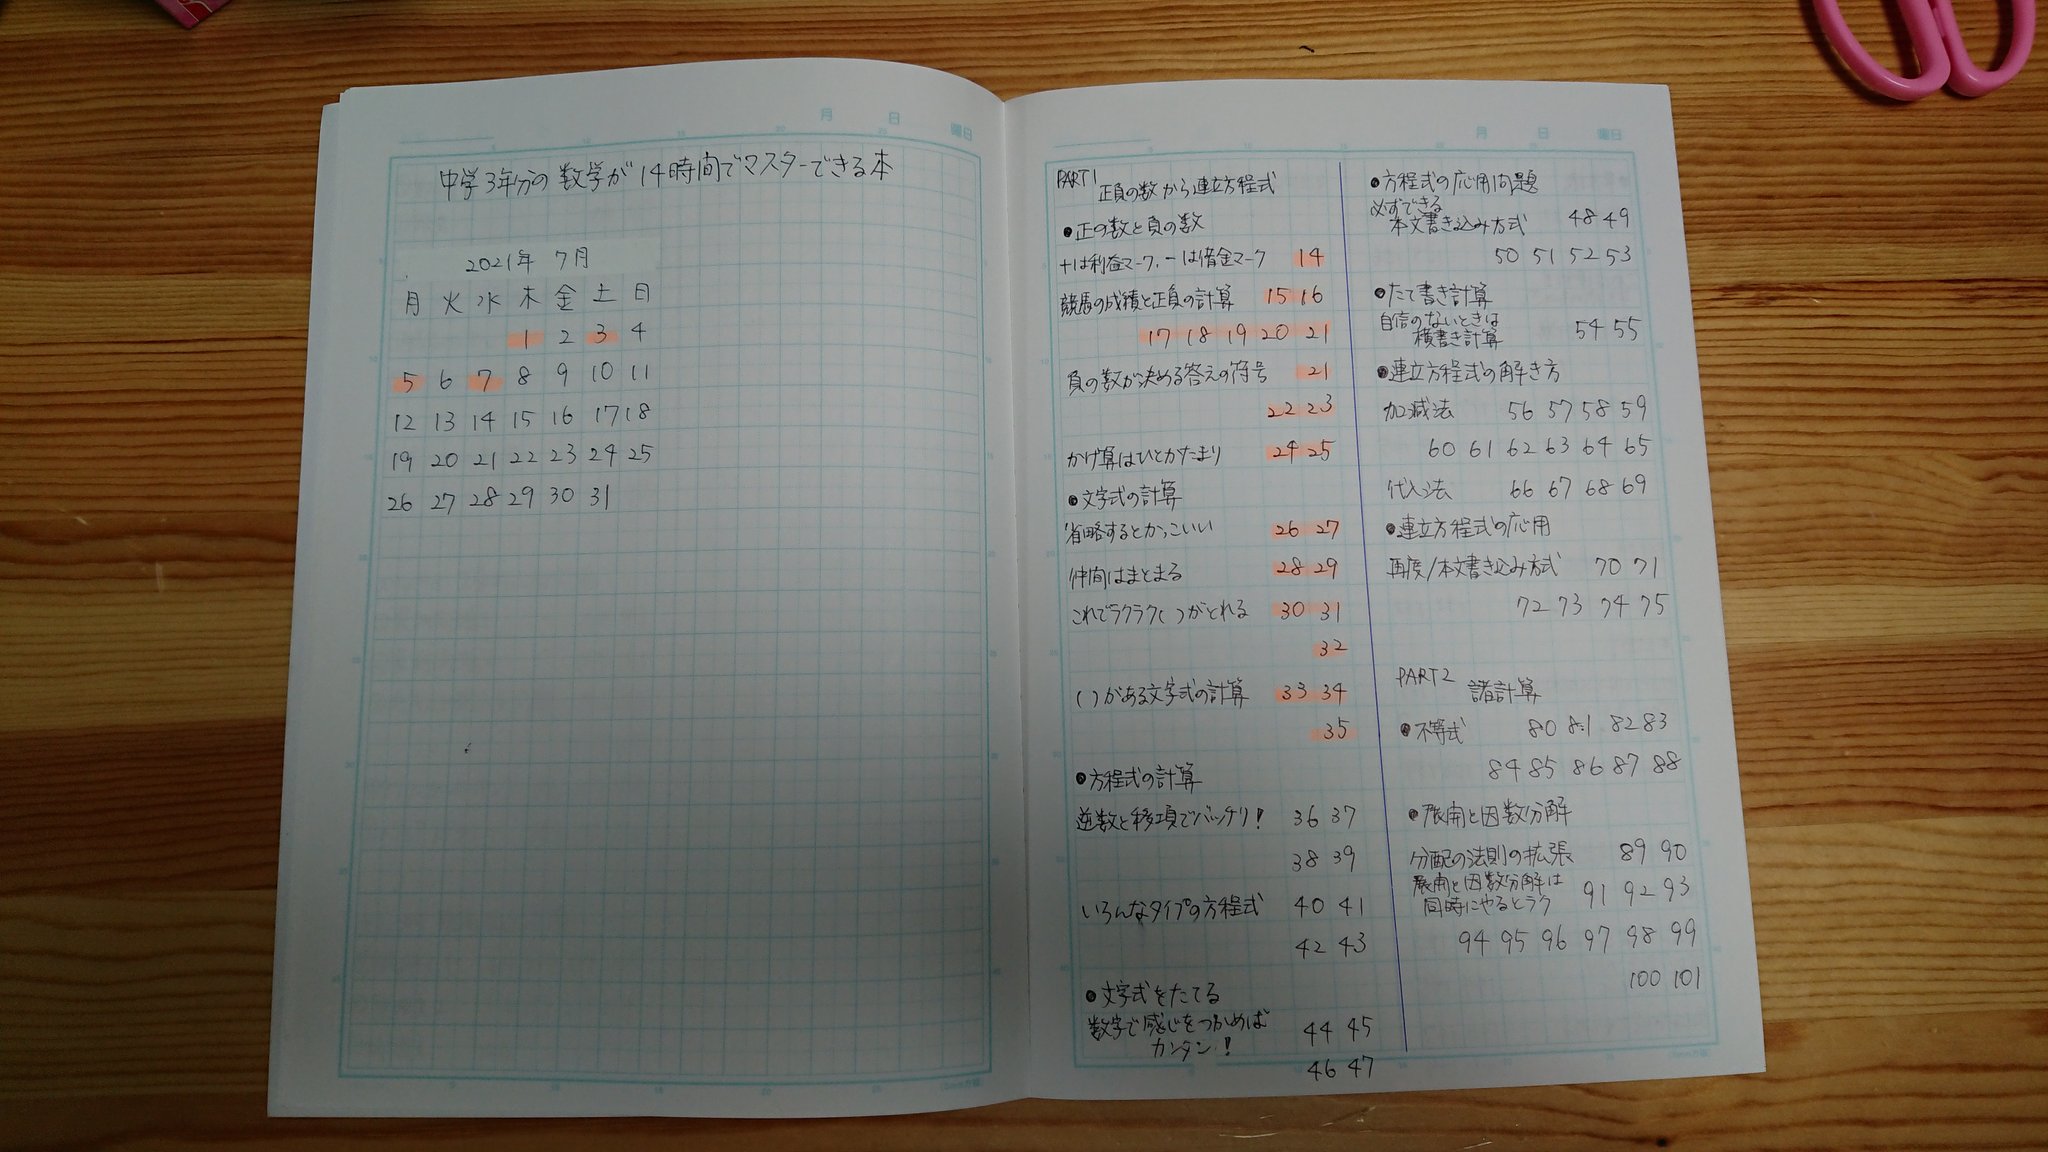 月 日 曜日
中学3年分の数学が14時間でマスターできる本
2021年 7月
月 火 水 木 金 土 日
1 2 3 4
5 6 7 8 9 10 11
12 13 14 15 16 17 18
19 20 21 22 23 24 25
26 27 28 29 30 31
月 日 曜日
PART1
正負の数から連立方程式
●正の数と負の数
+は利益マーク、-は借金マーク 14
競馬の成績と正負の計算 15 16
17 18 19 20 21
負の数が決める答えの符号 21
22 23
かけ算はひとかたまり 24 25
●文字式の計算
省略するとかっこいい 26 27
仲間はまとまる 28 29
これでラクラク( )がとれる 30 31
32
( )がある文字式の計算 33 34
35
●方程式の計算
逆数と移項でバッチリ! 36 37
38 39
いろんなタイプの方程式 40 41
42 43
●文字式をたてる
数字で感じをつかめば
カンタン! 44 45
46 47
●方程式の応用問題
必ずできる
本文書き込み方式 48 49
50 51 52 53
●たて書き計算
自信のないときは
横書き計算 54 55
●連立方程式の解き方
加減法 56 57 58 59
60 61 62 63 64 65
代入法 66 67 68 69
●連立方程式の応用
再度/本文書き込み方式 70 71
72 73 74 75
PART2
諸計算
●不等式 80 81 82 83
84 85 86 87 88
●展開と因数分解
分配の法則の拡張 89 90
展開と因数分解は
同時にやるとラク 91 92 93
94 95 96 97 98 99
100 101